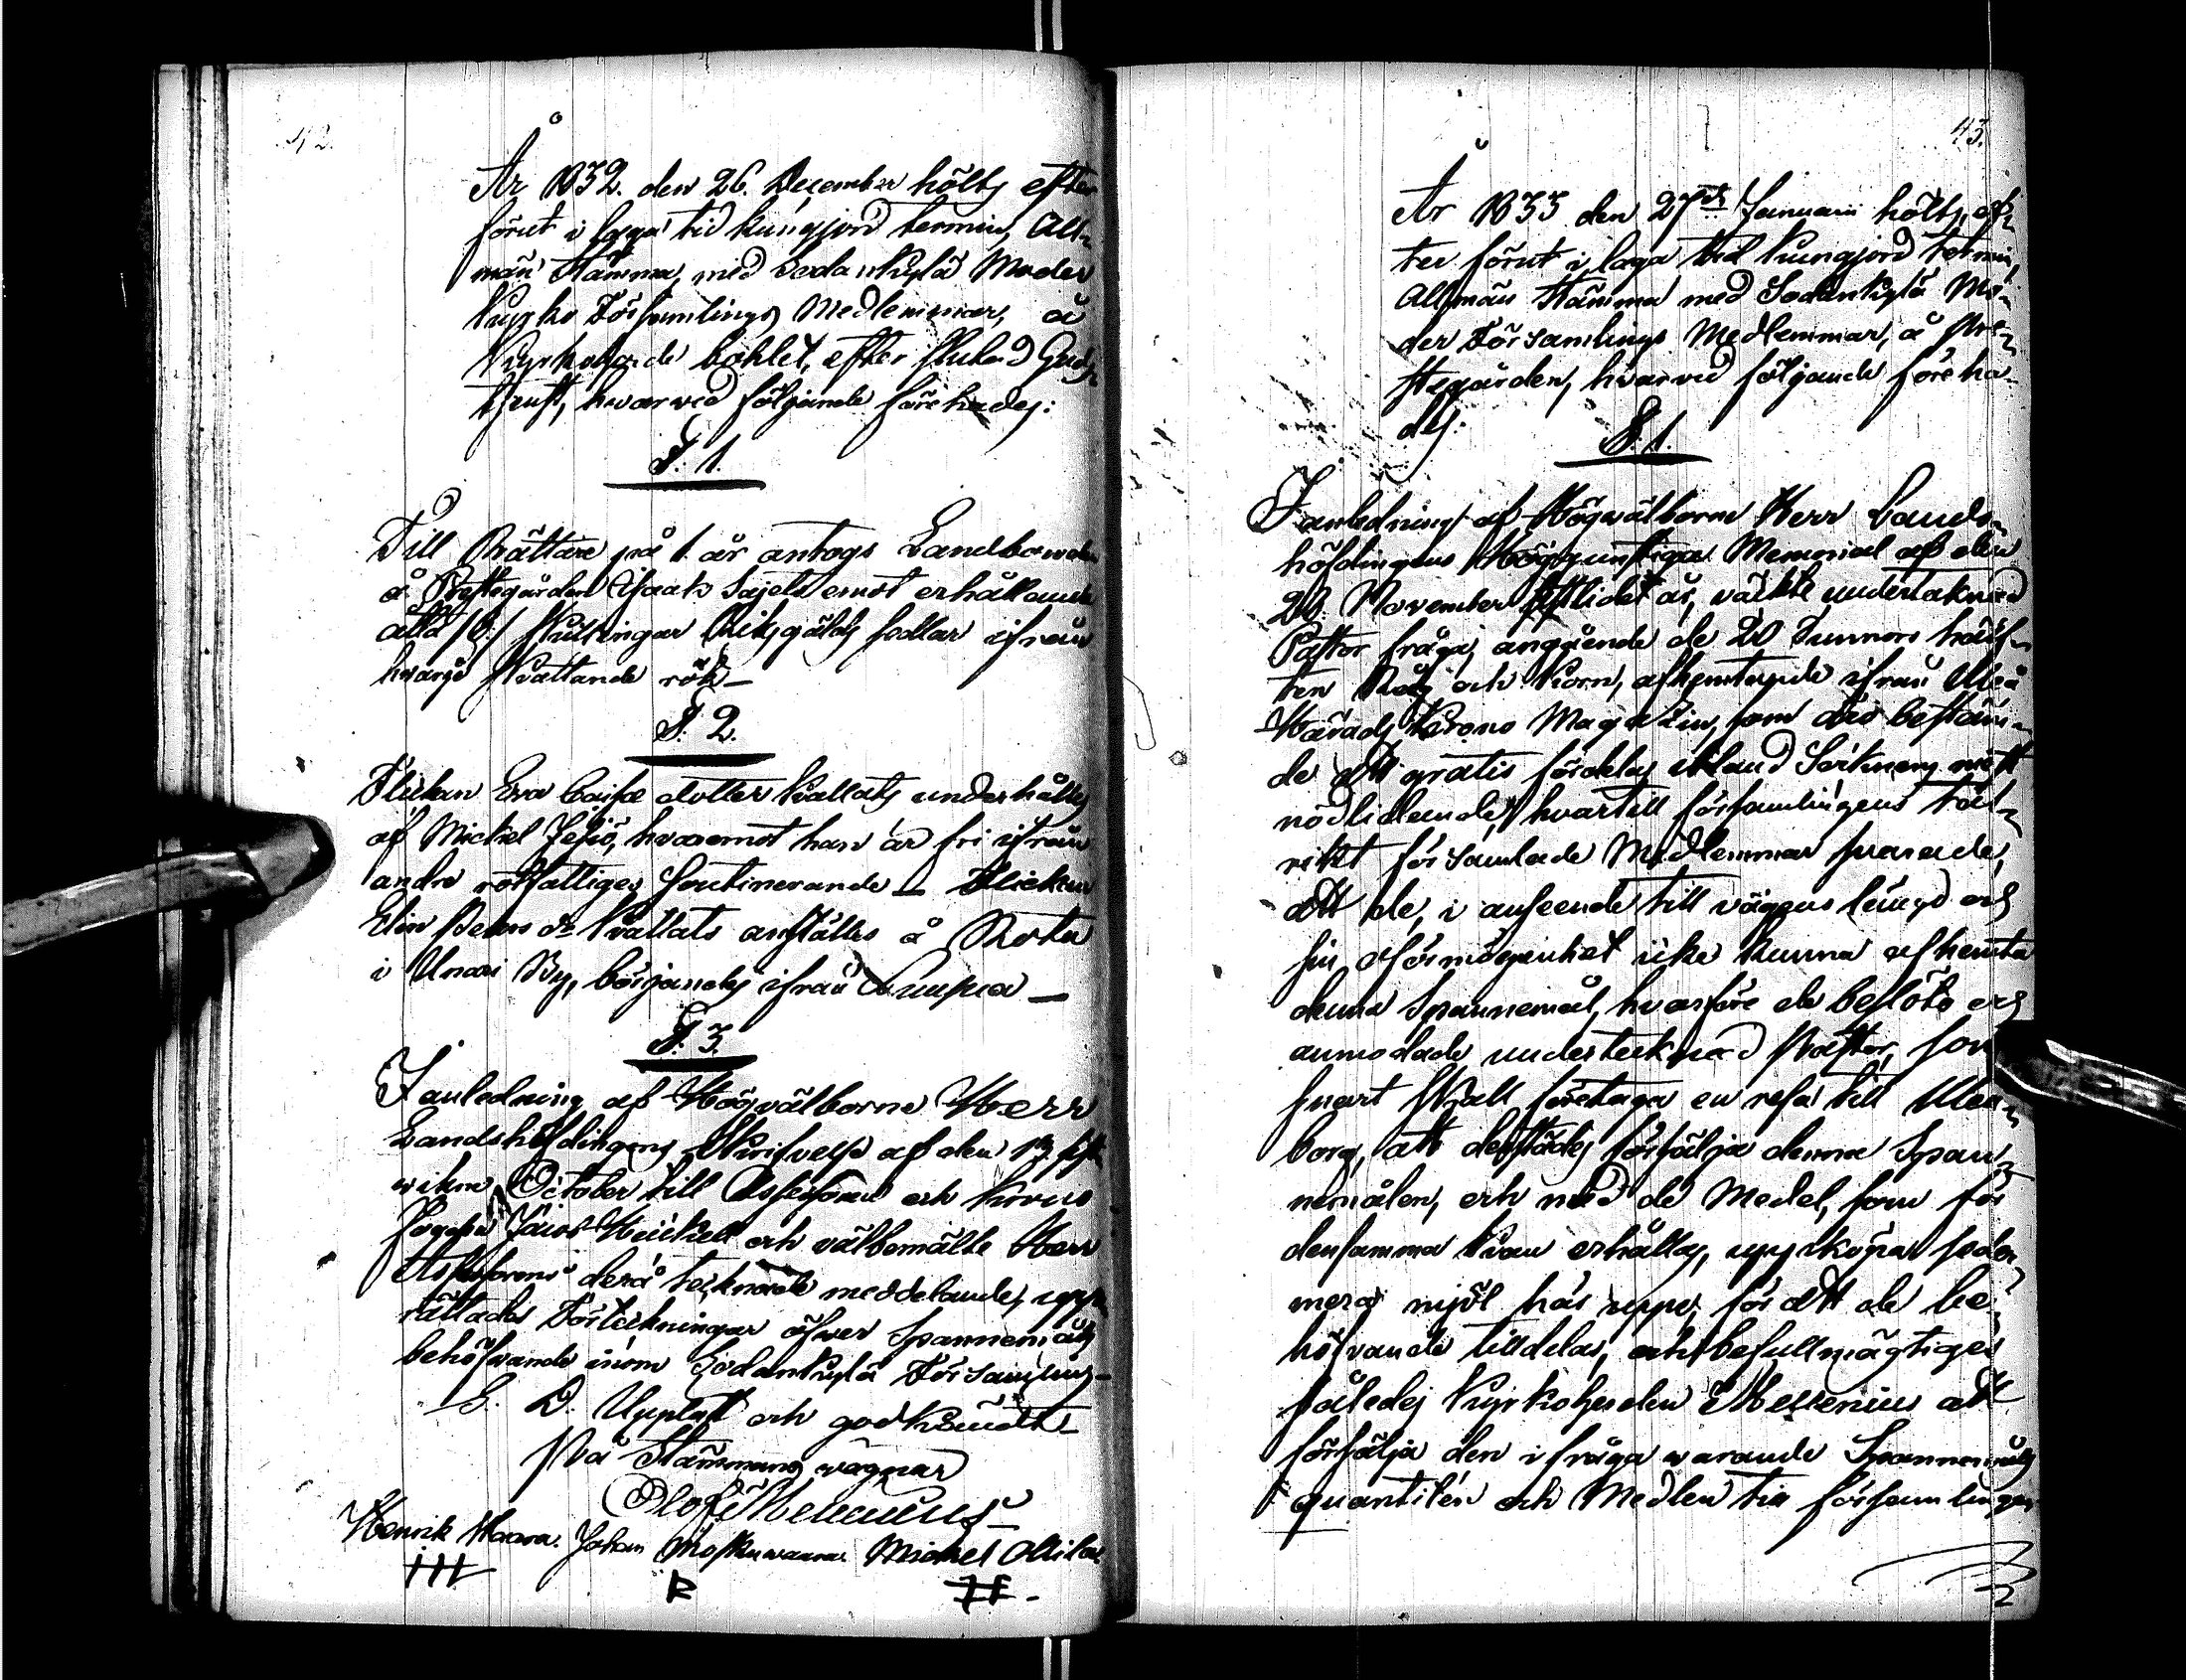 42.
År 1832. den 26. December hölts efter
förut i laga tid kungjord termin, All-
män Stämma, med Sodankylä Moder
Kyrko Församlings Medlemmar, å
Kyrkoherde bohlet, efter slutad Guds
tjenst, hvarvid följande förehades:
§. 1.
Till Rättare på 1 år antogs Landbonden
å Prestegården Isaak Sajets emot erhållande
åtta /8:/ Skillingar Riksgälds sedlar ifrån
hvarje skattande rök_
§. 2.
Flickan Eva Caisa dotter Kallats underhålles
af Mickel Jesiö, hvaremot han är fri ifrån
andre rotfattiges soutinerande _ Flickan
Elin Pehrs dr Kvallats anställes å Rota
i Unari By, börjandes ifrån Luupua _
§. 3.
I anledning af Högvälborne Herr
Landshöfdingens Skrifvelse af den 13 sist-
wikne October till Assessoren och Krono
Fogden Jäios Heickell och välbemälte Herr
Assessorens derå tecknade meddelande, upp-
rättades Förteckningar öfver Spannemåls
behöfvande inom Sodankylä Församling_
S. D. Uppläst och godkändt_
På Stämmans vägnar
Olof Mellenius_
Henrik Haara. Johan Moskuwaara Michel Ollila
III R H-
43.
År 1833 den 27de Januarii hölts, ef-
ter förut i laga tid kungjord termin,
Allmän Stämma med Sodankylä Mo-
der Församlings Medlemmar, å Pre-
stegården, hvarvid följande föreha-
des:
§. 1.
I anledning af Högvälborne Herr Lands-
höfdingens Höggunstiga Memorial af den
20. November sistlidet år, väckte undertecknad
Pastor fråga, angående de 20 Tunnors hälf-
ten Råg och Korn, afhemtande ifrån Uleå
Härads Krono Magazin, som äro bestäm-
de att gratis fördelas ibland Socknens mest
nödlidande, hvartill församlingens tal-
rikt församlade Medlemmar svarade,
att de, i anseende till vägens längd och
sin oförmögenhet icke kunna afhemta
denna Spannemål, hvarföre de beslöto och
anmodade undertecknad Pastor, som
snart skall företaga en resa till Uleå-
borg, att derstädes försälja denna Span-
nemålen, och med de Medel, som för
densamma kan erhållas, uppköpas seder-
mera mjöl här uppe, för att de be-
höfvande tilldelas, och befullmägtiges
således Kyrkoherden Mellenius att
försälja den i fråga warande Spannemåls
quantitén och Medlen till församlingen